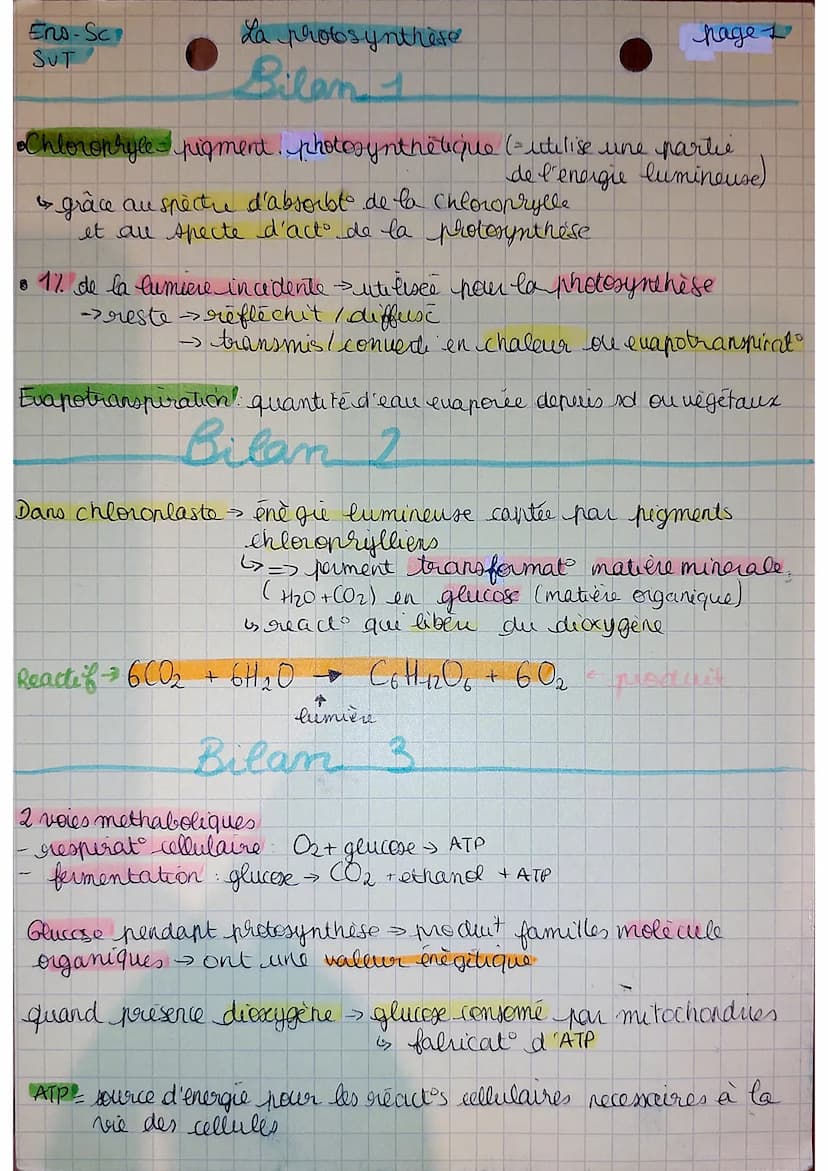 Ens-Sc
La photosynthèse
page 1
SVT
Bilan 1
•Chlorophyle= pigment photosynthétique (=utilise une partie
de l'énergie lumineuse)
↳ grâce au spectre d'absorbt° de la chlorophylle
et au specte d'act° de la photosynthèse
• 1% de la lumière incidente → utilisée pour la photosynthèse
→ reste → réfléchit / diffusé
→ transmis / converti en chaleur ou evapotranspirat°
Evapotranspiration: quantité d'eau evaporée depuis sol ou végétaux
Bilan 2
Dans chloroplaste → énègie lumineuse captée par pigments
chlorophylliens
↳ => perment transformat° matière minerale
(H2O + CO2) en glucose (matière organique)
↳ react° qui libère du dioxygène
Reactif → 6CO2 + 6H2O → C6H12O6 + 6O2 ← produit
↑
lumière
Bilan 3
2 voies methaboliques
- respirat° cellulaire : O2 + glucose → ATP
- fermentation : glucose → CO2 + ethanol + ATP
Glucose pendant photosynthèse → produit familles molécule
organiques → ont une valeur énégitique
quand présence dioxygène → glucose consomé par mitochondries
↳ fabricat° d'ATP
ATP = source d'energie pour les réact°s cellulaires necessaires à la
vie des cellules